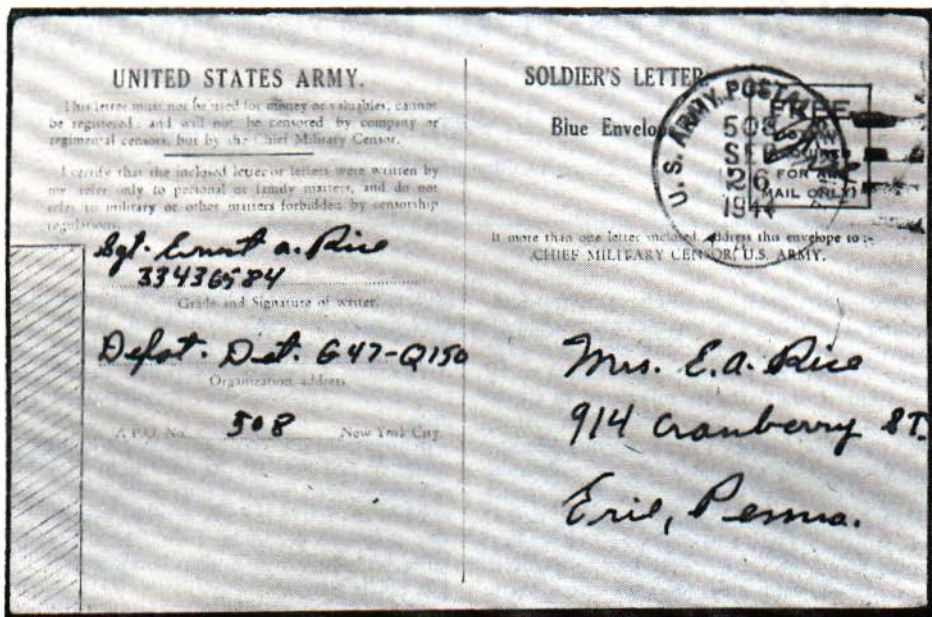 UNITED STATES ARMY.
This letter must not be used for money or valuables, cannot
be registered, and will not be censored by company or
regimental censors, but by the Chief Military Censor.
I certify that the inclosed letter or letters were written by
me, refer only to personal or family matters, and do not
refer to military or other matters forbidden by censorship
regulations.
Sgt. Ernest A. Rice
33436584
Grade and Signature of writer.
Depot. Det. G47-Q150
Organization address
A.P.O. No. 508 New York City
SOLDIER'S LETTER
Blue Envelope
U.S. ARMY POSTAL
508
SEP
26
1944
FREE
FOR
MAIL ONLY
If more than one letter inclosed, address this envelope to :-
CHIEF MILITARY CENSOR, U.S. ARMY.
Mrs. E.A. Rice
914 Cranberry ST.
Erie, Penna.